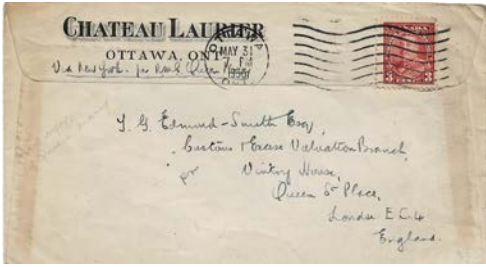 CHATEAU LAURIER
OTTAWA, ONT.
Via New York. per R.M.S. Queen
OTTAWA
MAY 31
PM
CANADA
3 3
Edmund-Smith Esq,
Customs & Excise Valuation Branch,
Vintry House,
Queen St Place,
London E.C.4
England.